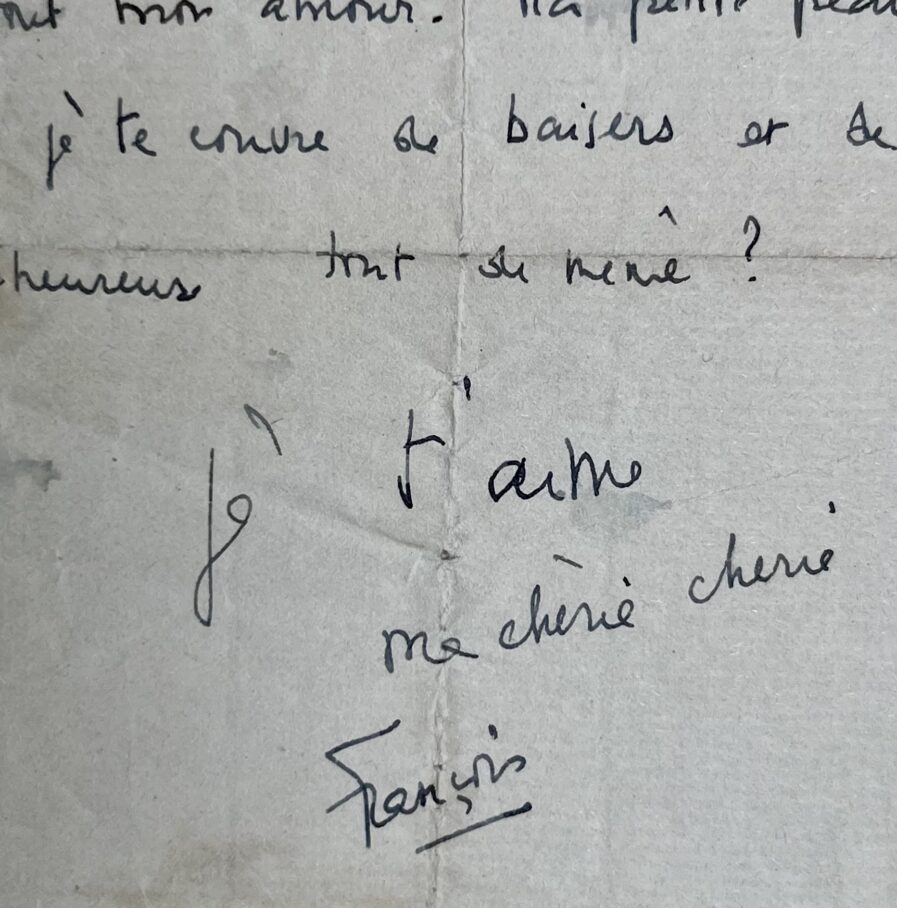 mon amour. Ma petite
je te couvre de baisers et de
heureux tout de même ?
Je t'aime
ma chérie chérie
François